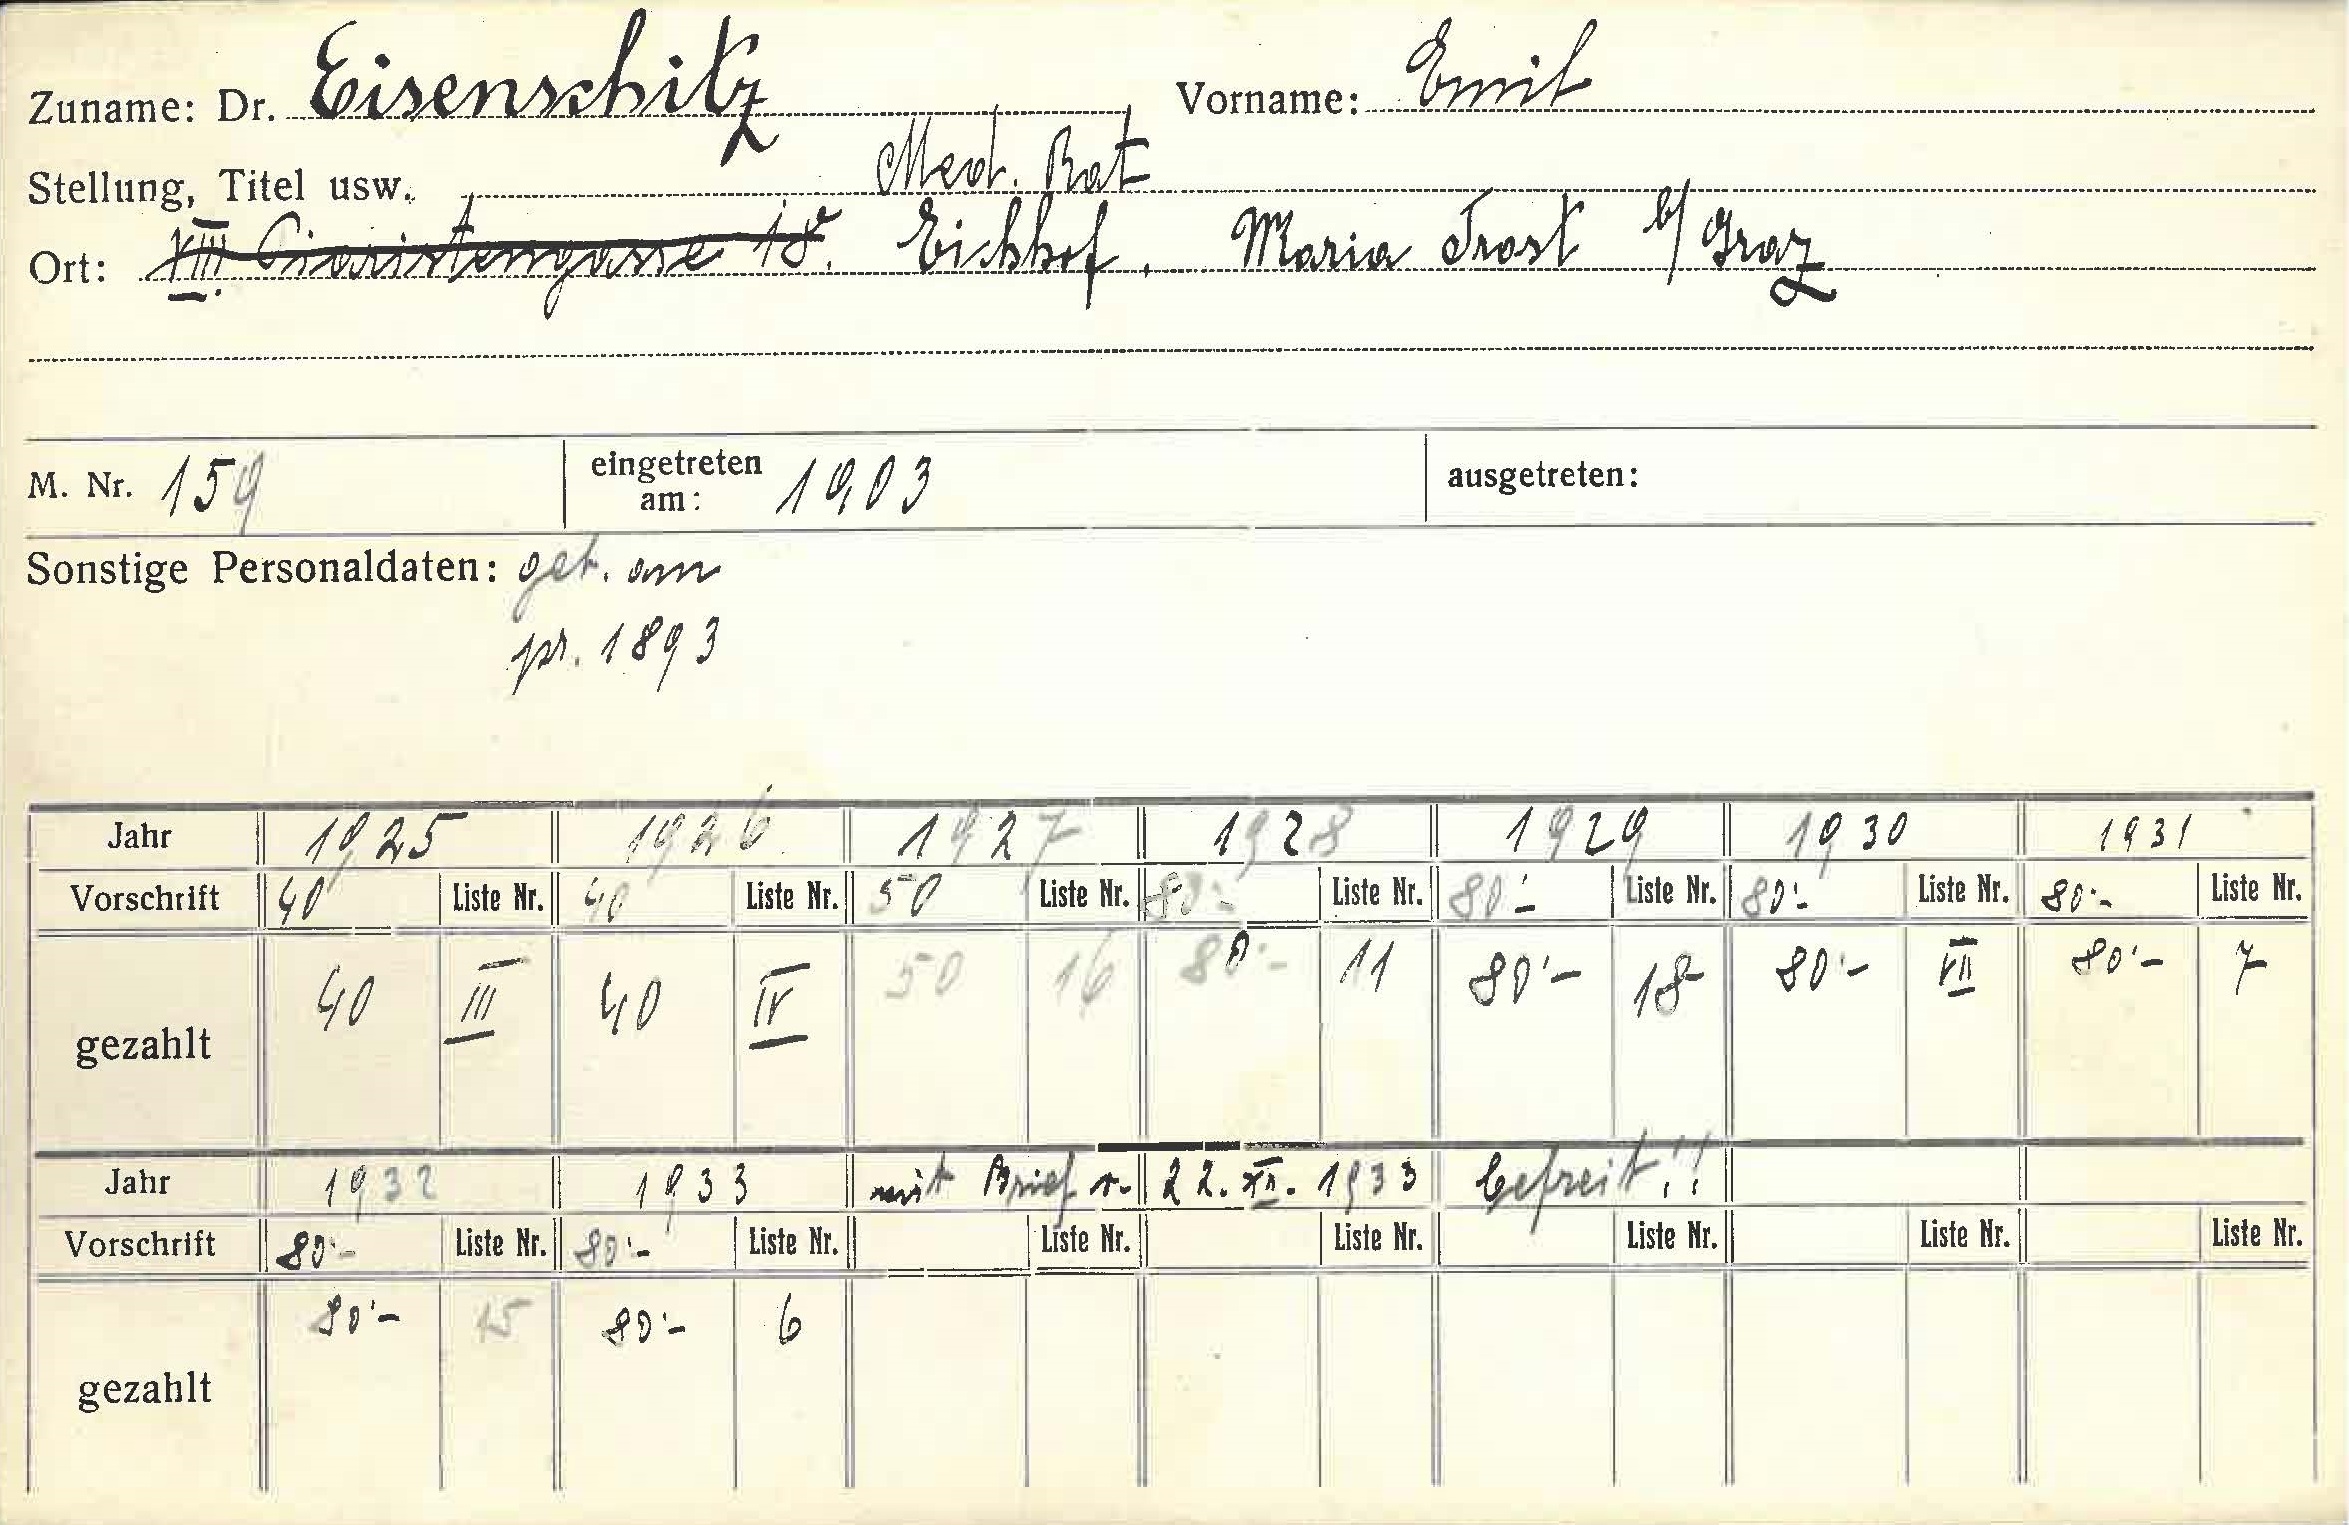 Zuname: Dr. Eisenschitz Vorname: Emil
Stellung, Titel usw. Med. Rat
Ort: VIII. Piaristengasse 18. Eichhof. Maria Trost b/ Graz
M. Nr. 159 eingetreten am: 1903 ausgetreten:
Sonstige Personaldaten: geb. am
pr. 1893
Jahr 1925 1926 1927 1928 1929 1930 1931
Vorschrift 40 Liste Nr. 40 Liste Nr. 50 Liste Nr. 80·- Liste Nr. 80·- Liste Nr. 80·- Liste Nr. 80·- Liste Nr.
gezahlt 40 III 40 IV 50 16 80·- 11 80·- 18 80·- VII 80·- 7
Jahr 1932 1933 mit Brief v. 22. XII. 1933 befreit!!
Vorschrift 80·- Liste Nr. 80·- Liste Nr. Liste Nr. Liste Nr. Liste Nr. Liste Nr. Liste Nr.
gezahlt 80·- 15 80·- 6